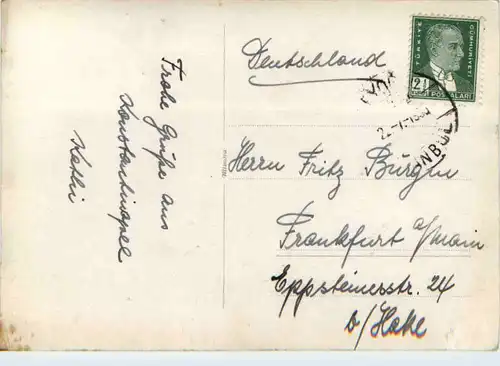 Frohe Grüße aus
Konstantinopel
Kathi
Deutschland
TÜRKİYE
CÜMHURİYETİ
2½
POSTALARI
Herrn Fritz Burgen
Frankfurt a/Main
Eppsteinerstr. 24
b/Hake